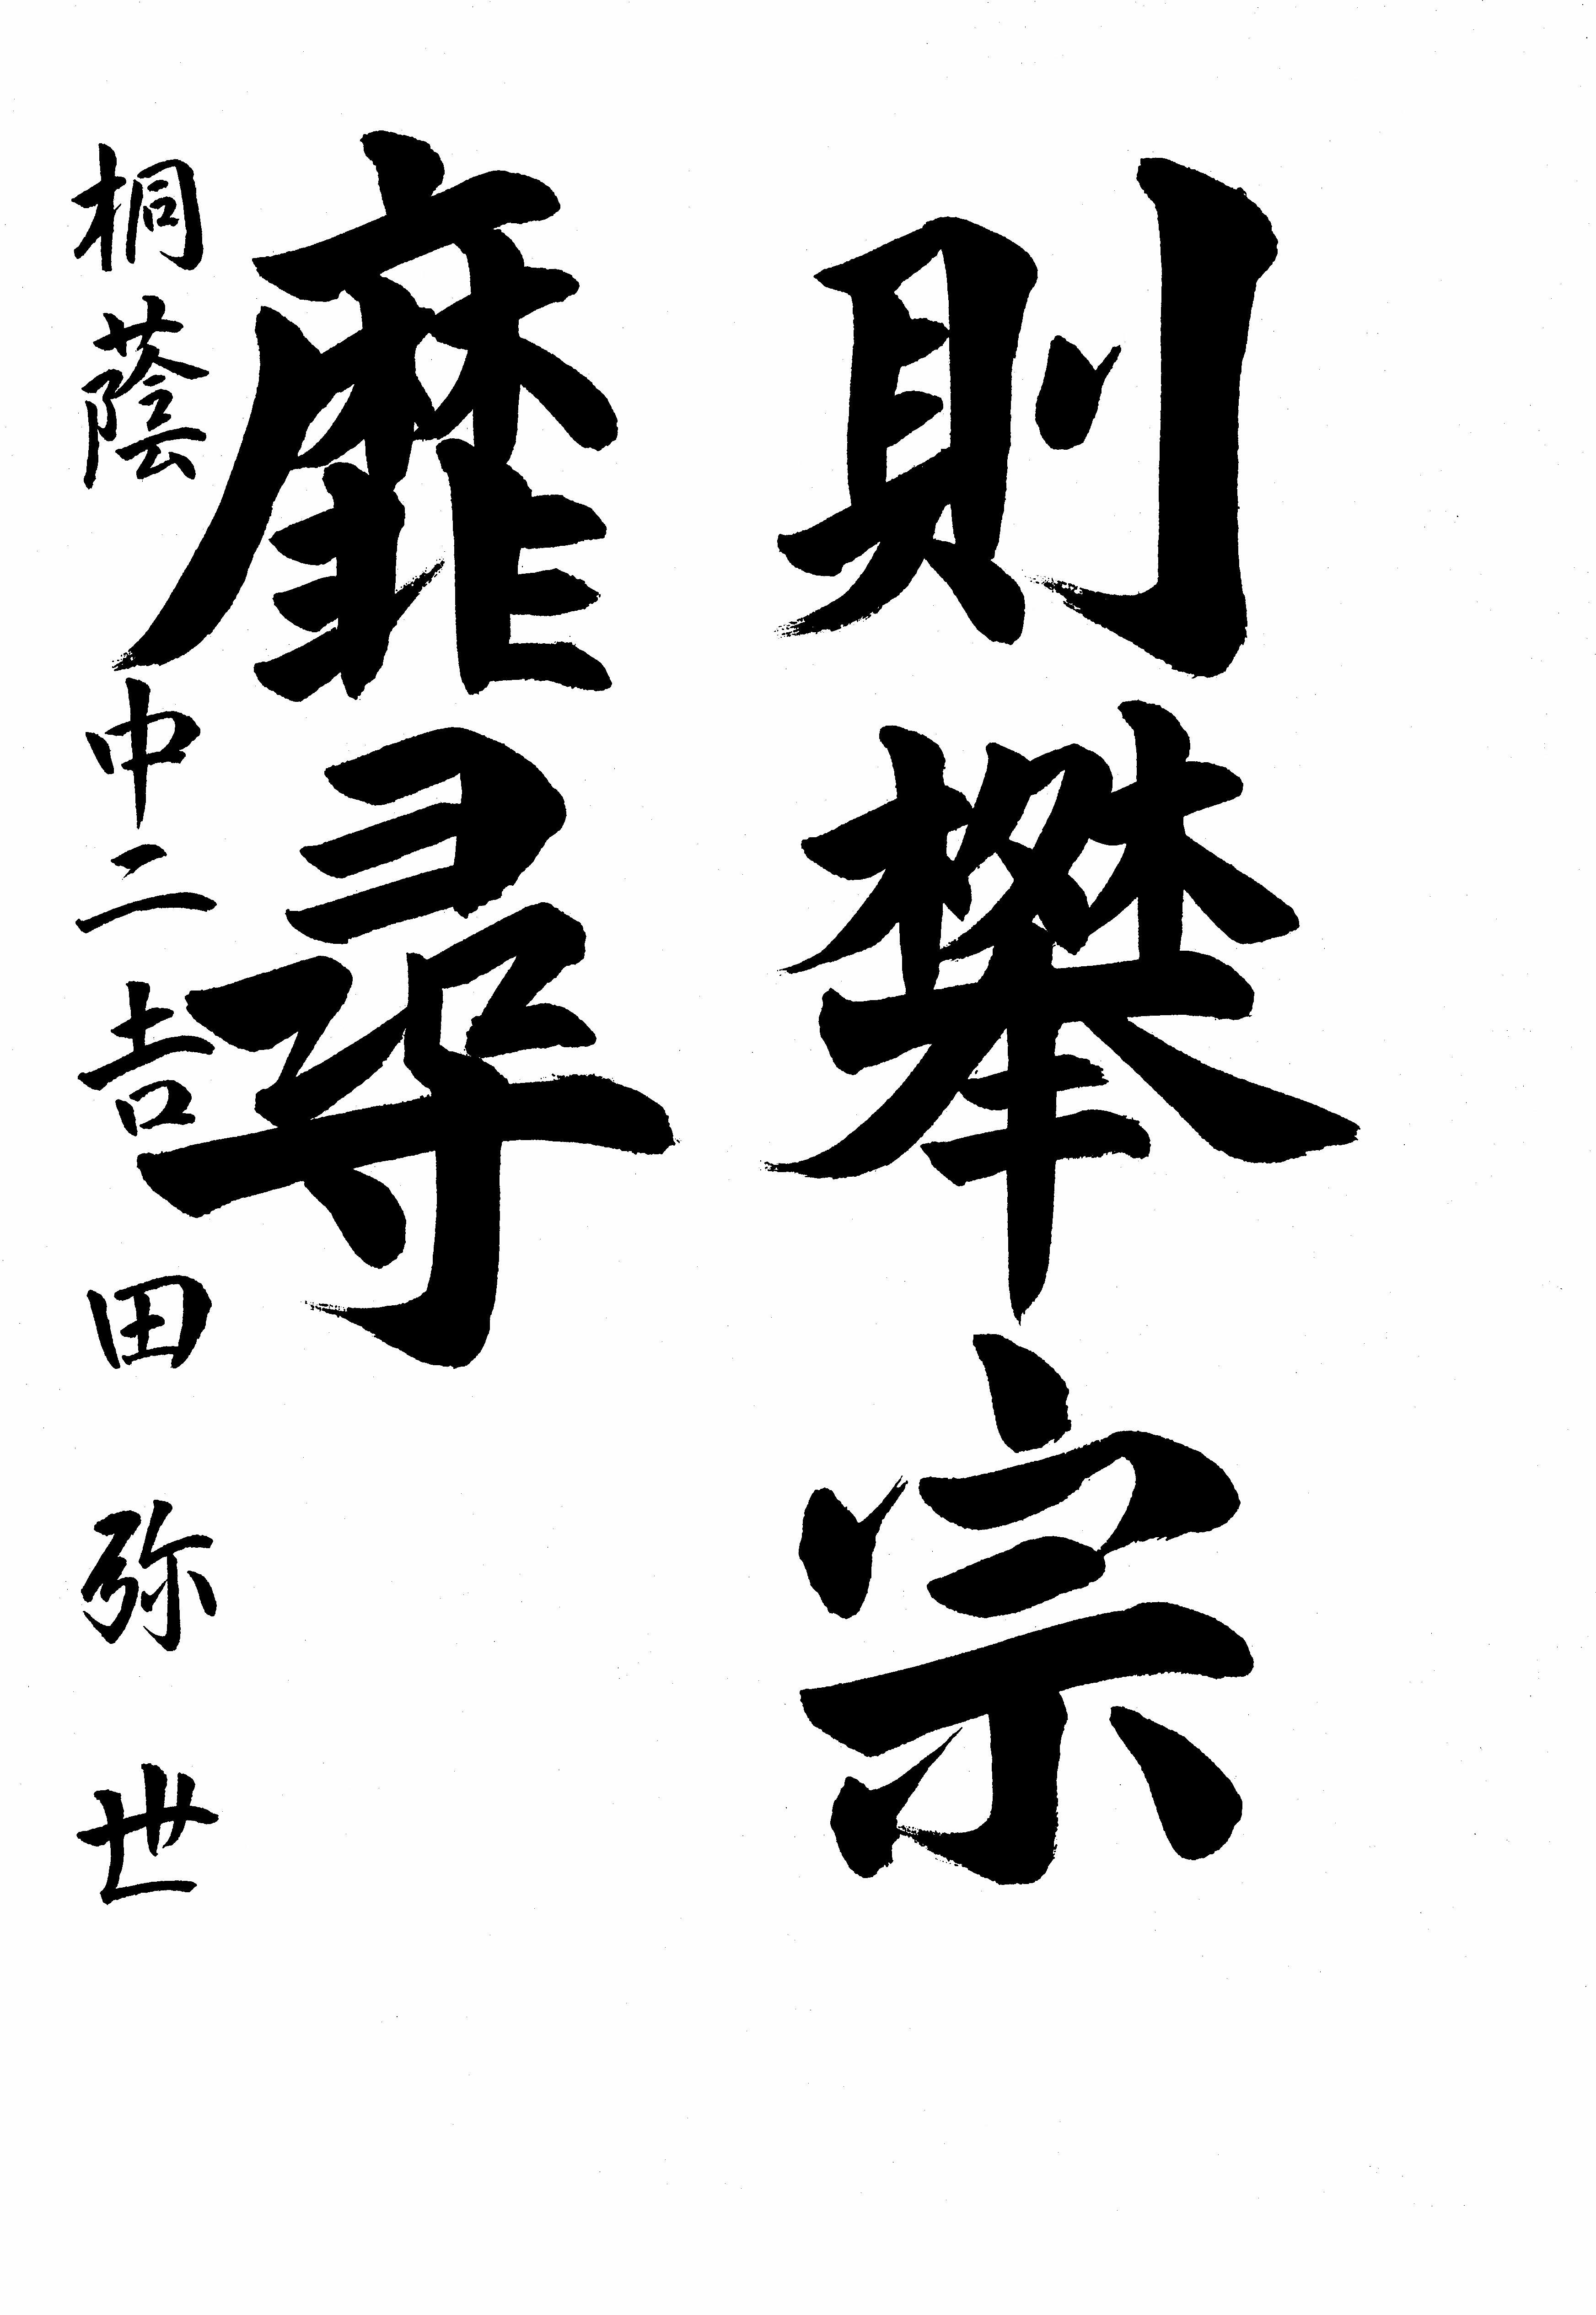 則攀宗
靡尋
桐蔭中二吉田弥世